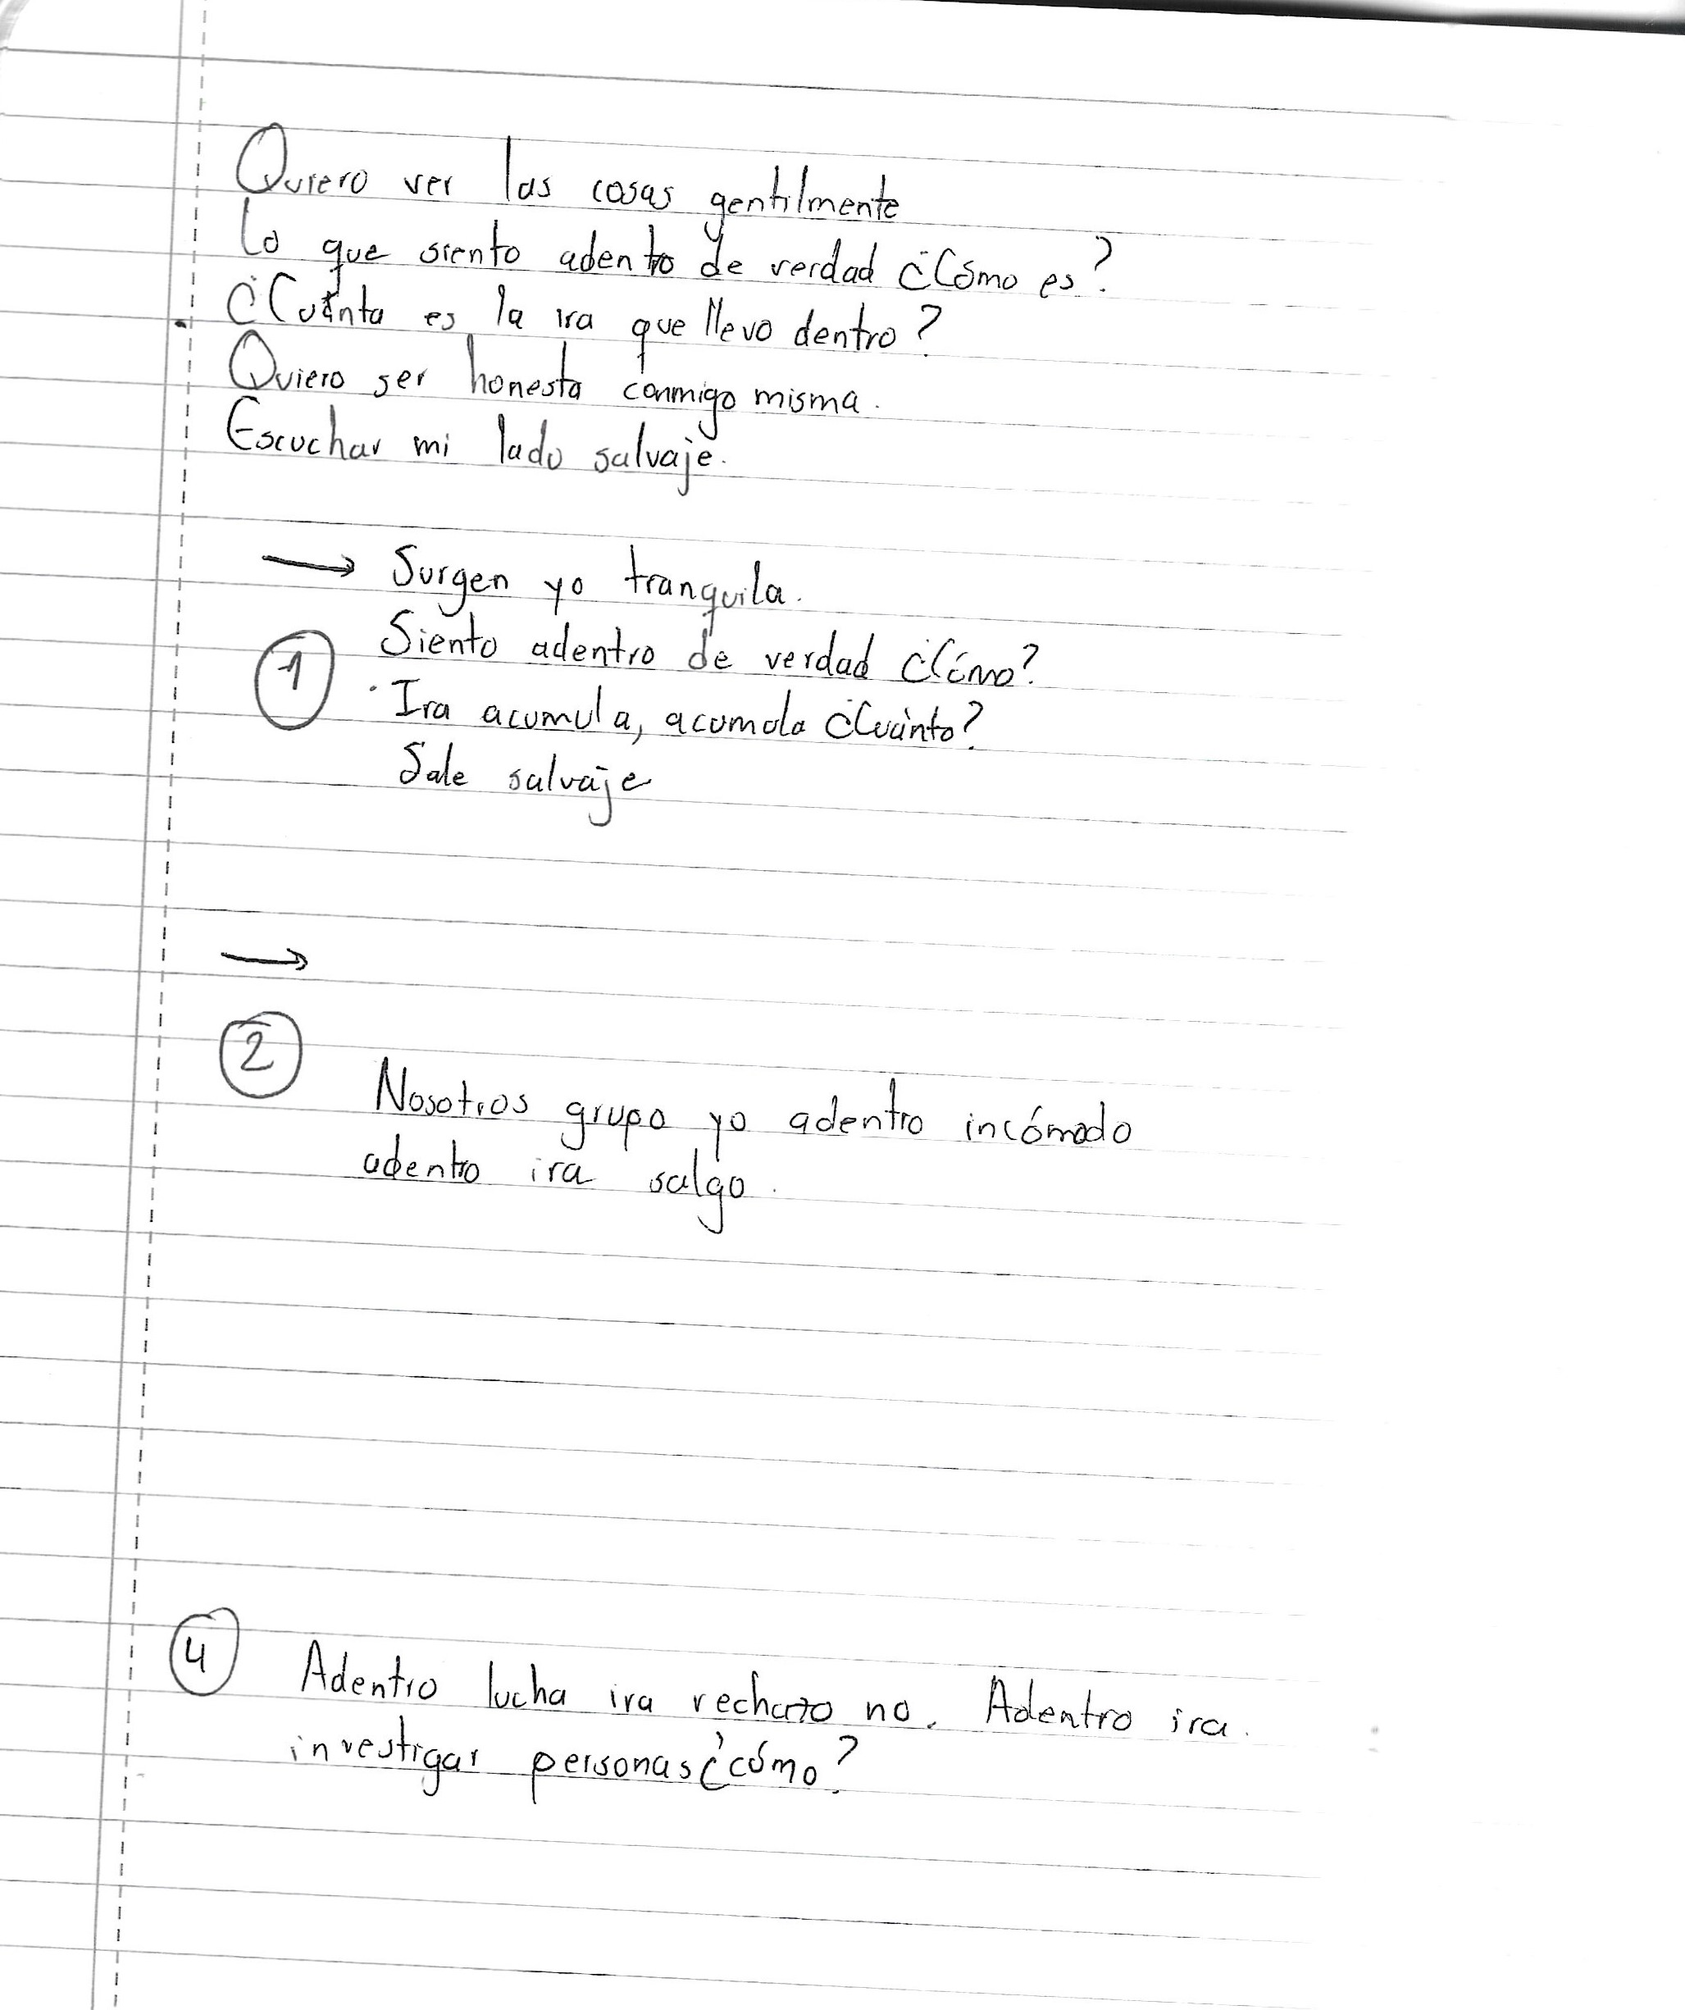 Quiero ver las cosas gentilmente
Lo que siento adentro de verdad ¿Cómo es?
¿Cuánta es la ira que llevo dentro?
Quiero ser honesta conmigo misma.
Escuchar mi lado salvaje.
→ Surgen yo tranquila.
Siento adentro de verdad ¿Cómo?
1
Ira acumula, acumula ¿Cuánto?
Sale salvaje
→
2
Nosotros grupo yo adentro incómodo
adentro ira salgo.
4 Adentro lucha ira rechazo no. Adentro ira.
investigar personas ¿cómo?